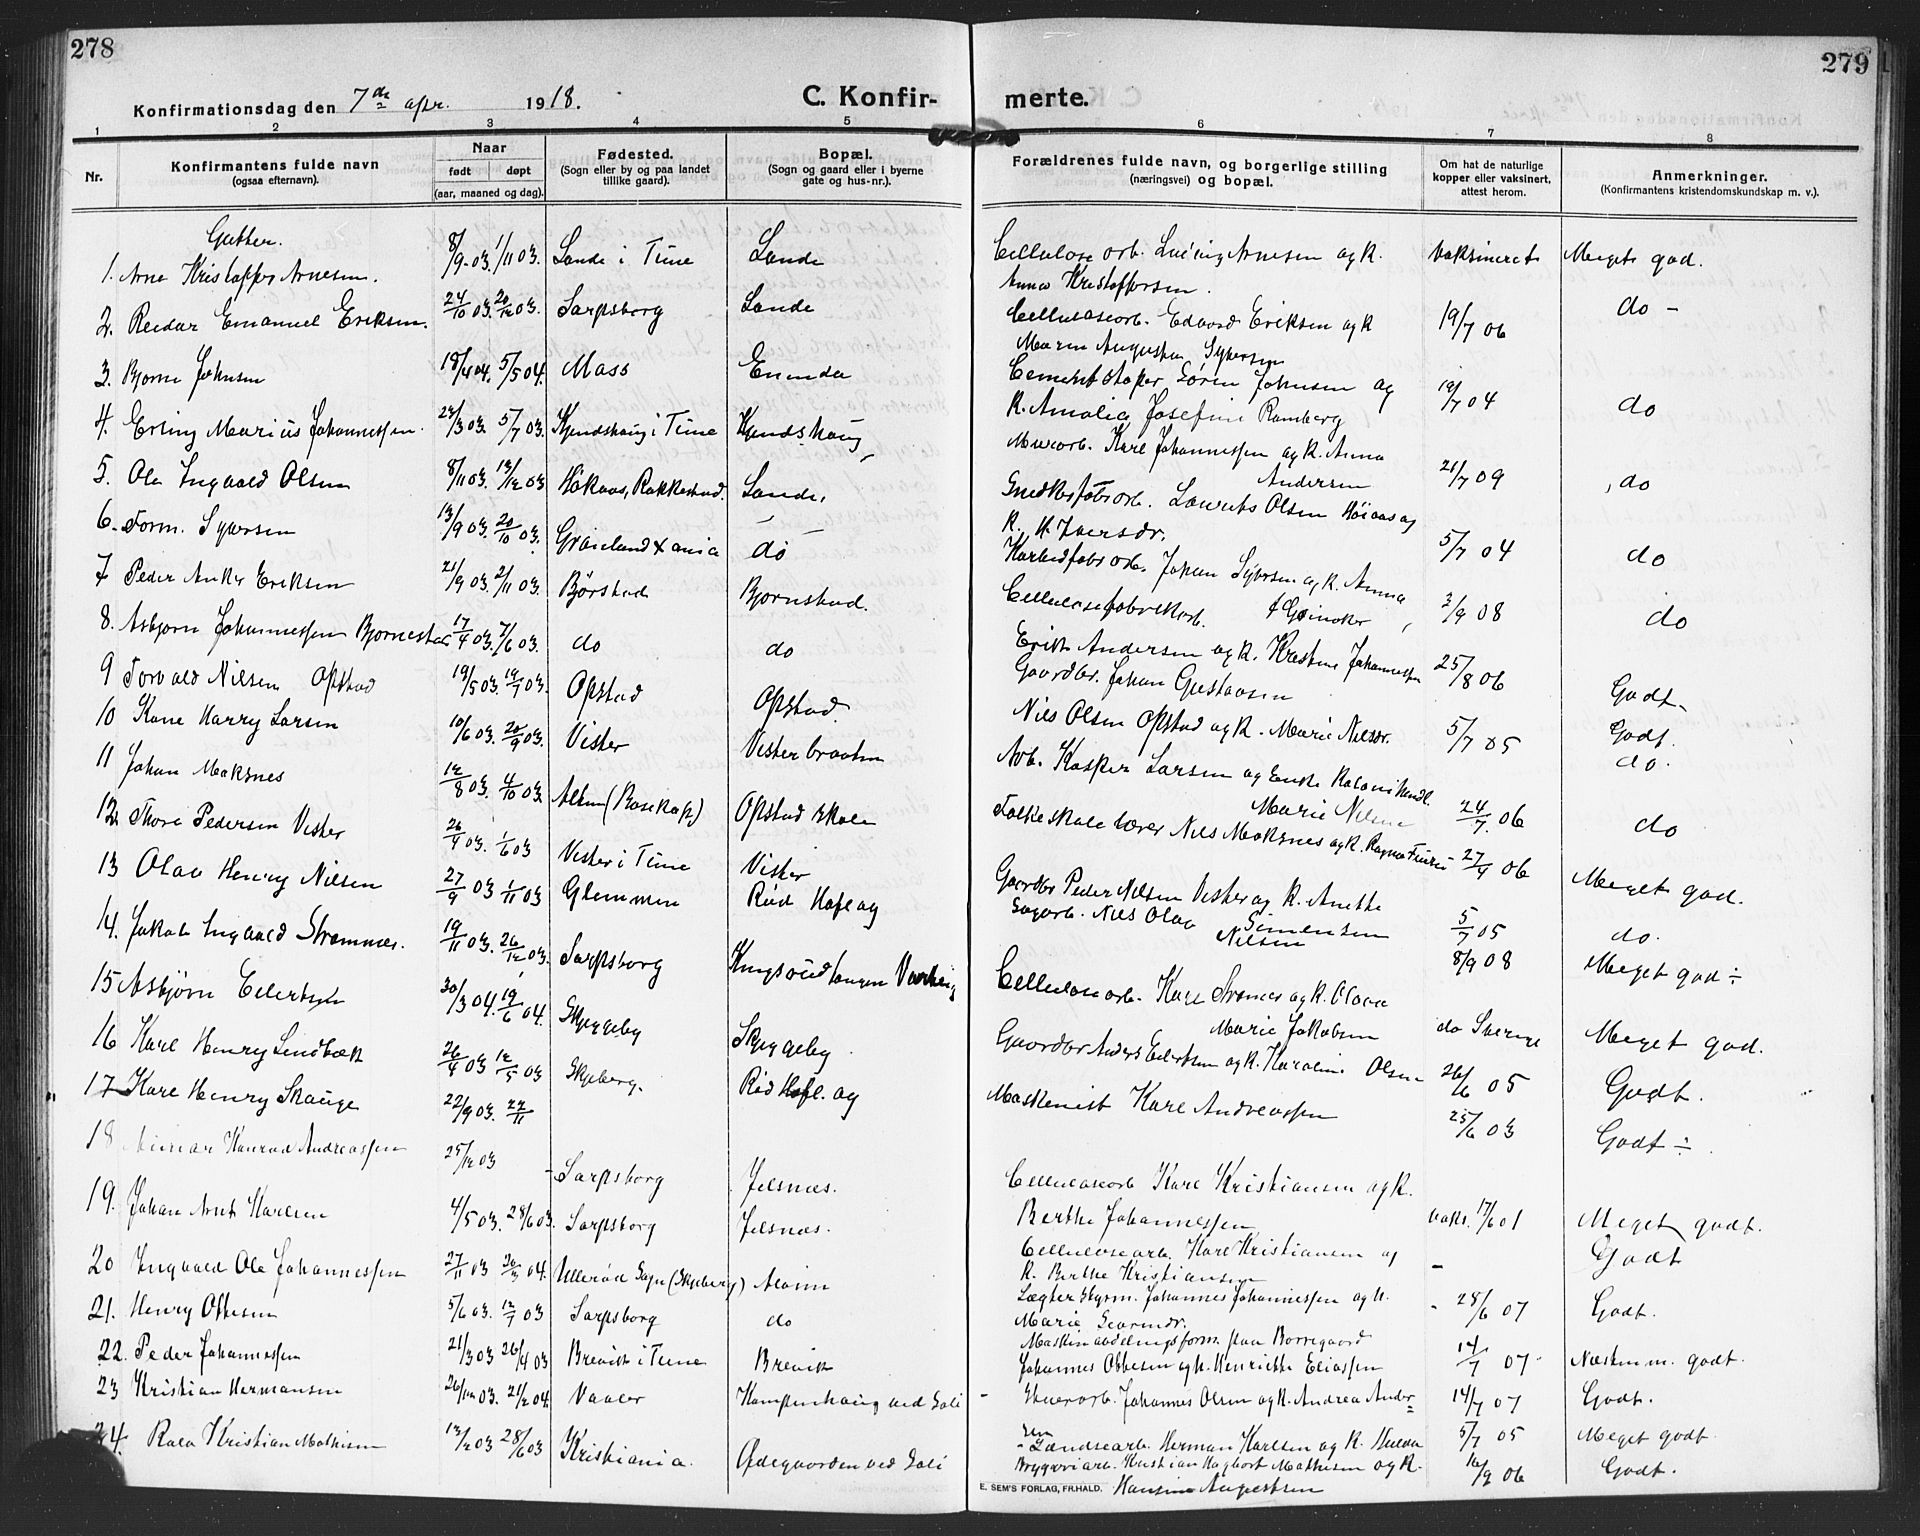 278
Konfirmationsdag den 7de apr. 1918.
C. Konfir-
1 2 3 4 5
Nr.
Konfirmantens fulde navn
(ogsaa efternavn).
Naar
født døpt
(aar, maaned og dag).
Fødested.
(Sogn eller by og paa landet
tillike gaard).
Bopæl.
(Sogn og gaard eller i byerne
gate og hus-nr.).
Gutter.
1. Arne Kristoffer Arnesen. 8/9 03. 1/11 03. Lande i Tune Lande
2. Reidar Emanuel Eriksen. 24/10 03. 20/12 03. Sarpsborg Lande
3. Bjarne Johnsen 18/4 04. 5/5 04. Moss Enenda
4. Erling Marius Johannessen. 5/7 03. i Tune
5. Ole Ingvald Olsen 8/11 03. 13/12 03 Rakkestad. Lande.
6. 13/9 03. 20/10 03. do
7 Peder Anker Eriksen 21/9 03. 2/11 03. Bjørnstad.
8. Asbjørn Johannessen Bjørnestad 17/4 03. 7/6 03. do do
9 Torvald Nilsen Opstad 19/5 03. 19/7 03. Opstad Opstad.
10 Kåre Harry Larsen 10/6 03. 20/9 03. Vister Visterbraaten
11 Johan Moksnes 12/8 03. 4/10 03. Alten (Bosekop) Opstad skole
12. Thore Pedersen Vister 1/6 03 Vister i Tune Vister
13 Olav Henry Nilsen 27/9 03 1/11 03 Glemmen Rød
14. Jakob Ingvald Strømnes. 19/11 03. 26/12 03. Sarpsborg
15 Asbjørn Eilertsen 30/3 04. 19/6 04. Skjeggeby Skjeggeby
16 Karl Henry Lindbæk 26/4 03 12/5 03 Skjeberg. Rød
17 Kåre Henry Skauge 22/9 03. 22/11
18 Konrad Andreassen 25/12 03 Sarpsborg Jelsnes.
19. Johan Arnt Karlsen 4/5 03. 28/6 03. Sarpsborg Jelsnes.
20 Ingvald Ole Johannessen 27/11 03 04. Ullerød Sogn (Skjeberg) Alvim
21. Henry Ottesen 5/6 03. 12/7 03 Sarpsborg do
22. Peder Johannessen 21/3 03 26/4 03 Brevik i Tune Brevik
23 Kristian Hermansen 21/2 04. Vaaler Kampenhaug ved Soli
24. Rolv Kristian Mathisen 28/6 03 Kristiania. Ødegaarden ved Soli
279
merte.
6 7 8
Forældrenes fulde navn, og borgerlige stilling
(næringsvei) og bopæl.
Om hat de naturlige
kopper eller vaksinert,
attest herom.
Anmerkninger.
(Konfirmantens kristendomskundskap m. v.).
Cellulosearb. Arnesen og K. Vaksineret Meget god.
Anna Kristoffersen.
Cellulosearb. Edvard Eriksen og K 19/7 06 do -
Maren Augusta Syversen
Cementstøper Søren Johnsen og 19/7 04 do
K. Amalie Josefine Ramberg
Murarb. Karl Johannessen og K. Anna
Andersen 21/7 09 do
Laurits Olsen og
K. H. Iversdr. 5/7 04 do
Karbidfabr arb. Johan Syversen og K. Anna
Cellulosefabrikarb. 2/9 08 do
Erik Andersen og K. Kristine Johannessen 25/8 06 Godt.
Gaardbr. Johan Gustavsen
Nils Olsen Opstad og K. Marie Nilsdr. 5/7 05 Godt.
Arb. Kasper Larsen og do.
Marie Nilsen 24/7 06 do
Folkeskolelærer Nils Moksnes og K. Ragna 06 Meget god.
Gaardbr Peder Nilsen Vister og K. Anette
Simensen 5/7 05 do.
Sagarb. Nils Olav
Nilsen 8/9 08 Meget god ÷
Cellulosearb. Kare Strømnes og K. Olava
Marie Jakobsen do Sverige Meget god.
Gaardbr Anders Eilertsen og K. Karoline Olsen 26/6 05 Godt.
Maskenist Karl Andreassen 25/6 03 Godt ÷
Cellulosearb Karl Kristiansen og K.
Berthe Johannessen vaks. 17/6 01 Meget godt.
Cellulosearb. Karl Kristiansen og - Godt
K. Berthe Kristiansen
Johannes Johannessen og K. - 28/6 07 Godt.
Marie
Maskinavdelingsform. paa Borregaard
Johannes Ottesen og K. Henriette Eliassen 14/7 07 Næsten m. godt.
Johannes Olsen og K. Andrea Ander= 14/7 07 Godt.
sen
Herman Karlsen og K. Hulda 5/7 05 Meget godt.
Bryggeriarb. Kristian Hagbart Mathisen og K. 16/9 06 Godt.
Hansine Augustsen
E. SEM'S FORLAG, FR.HALD.